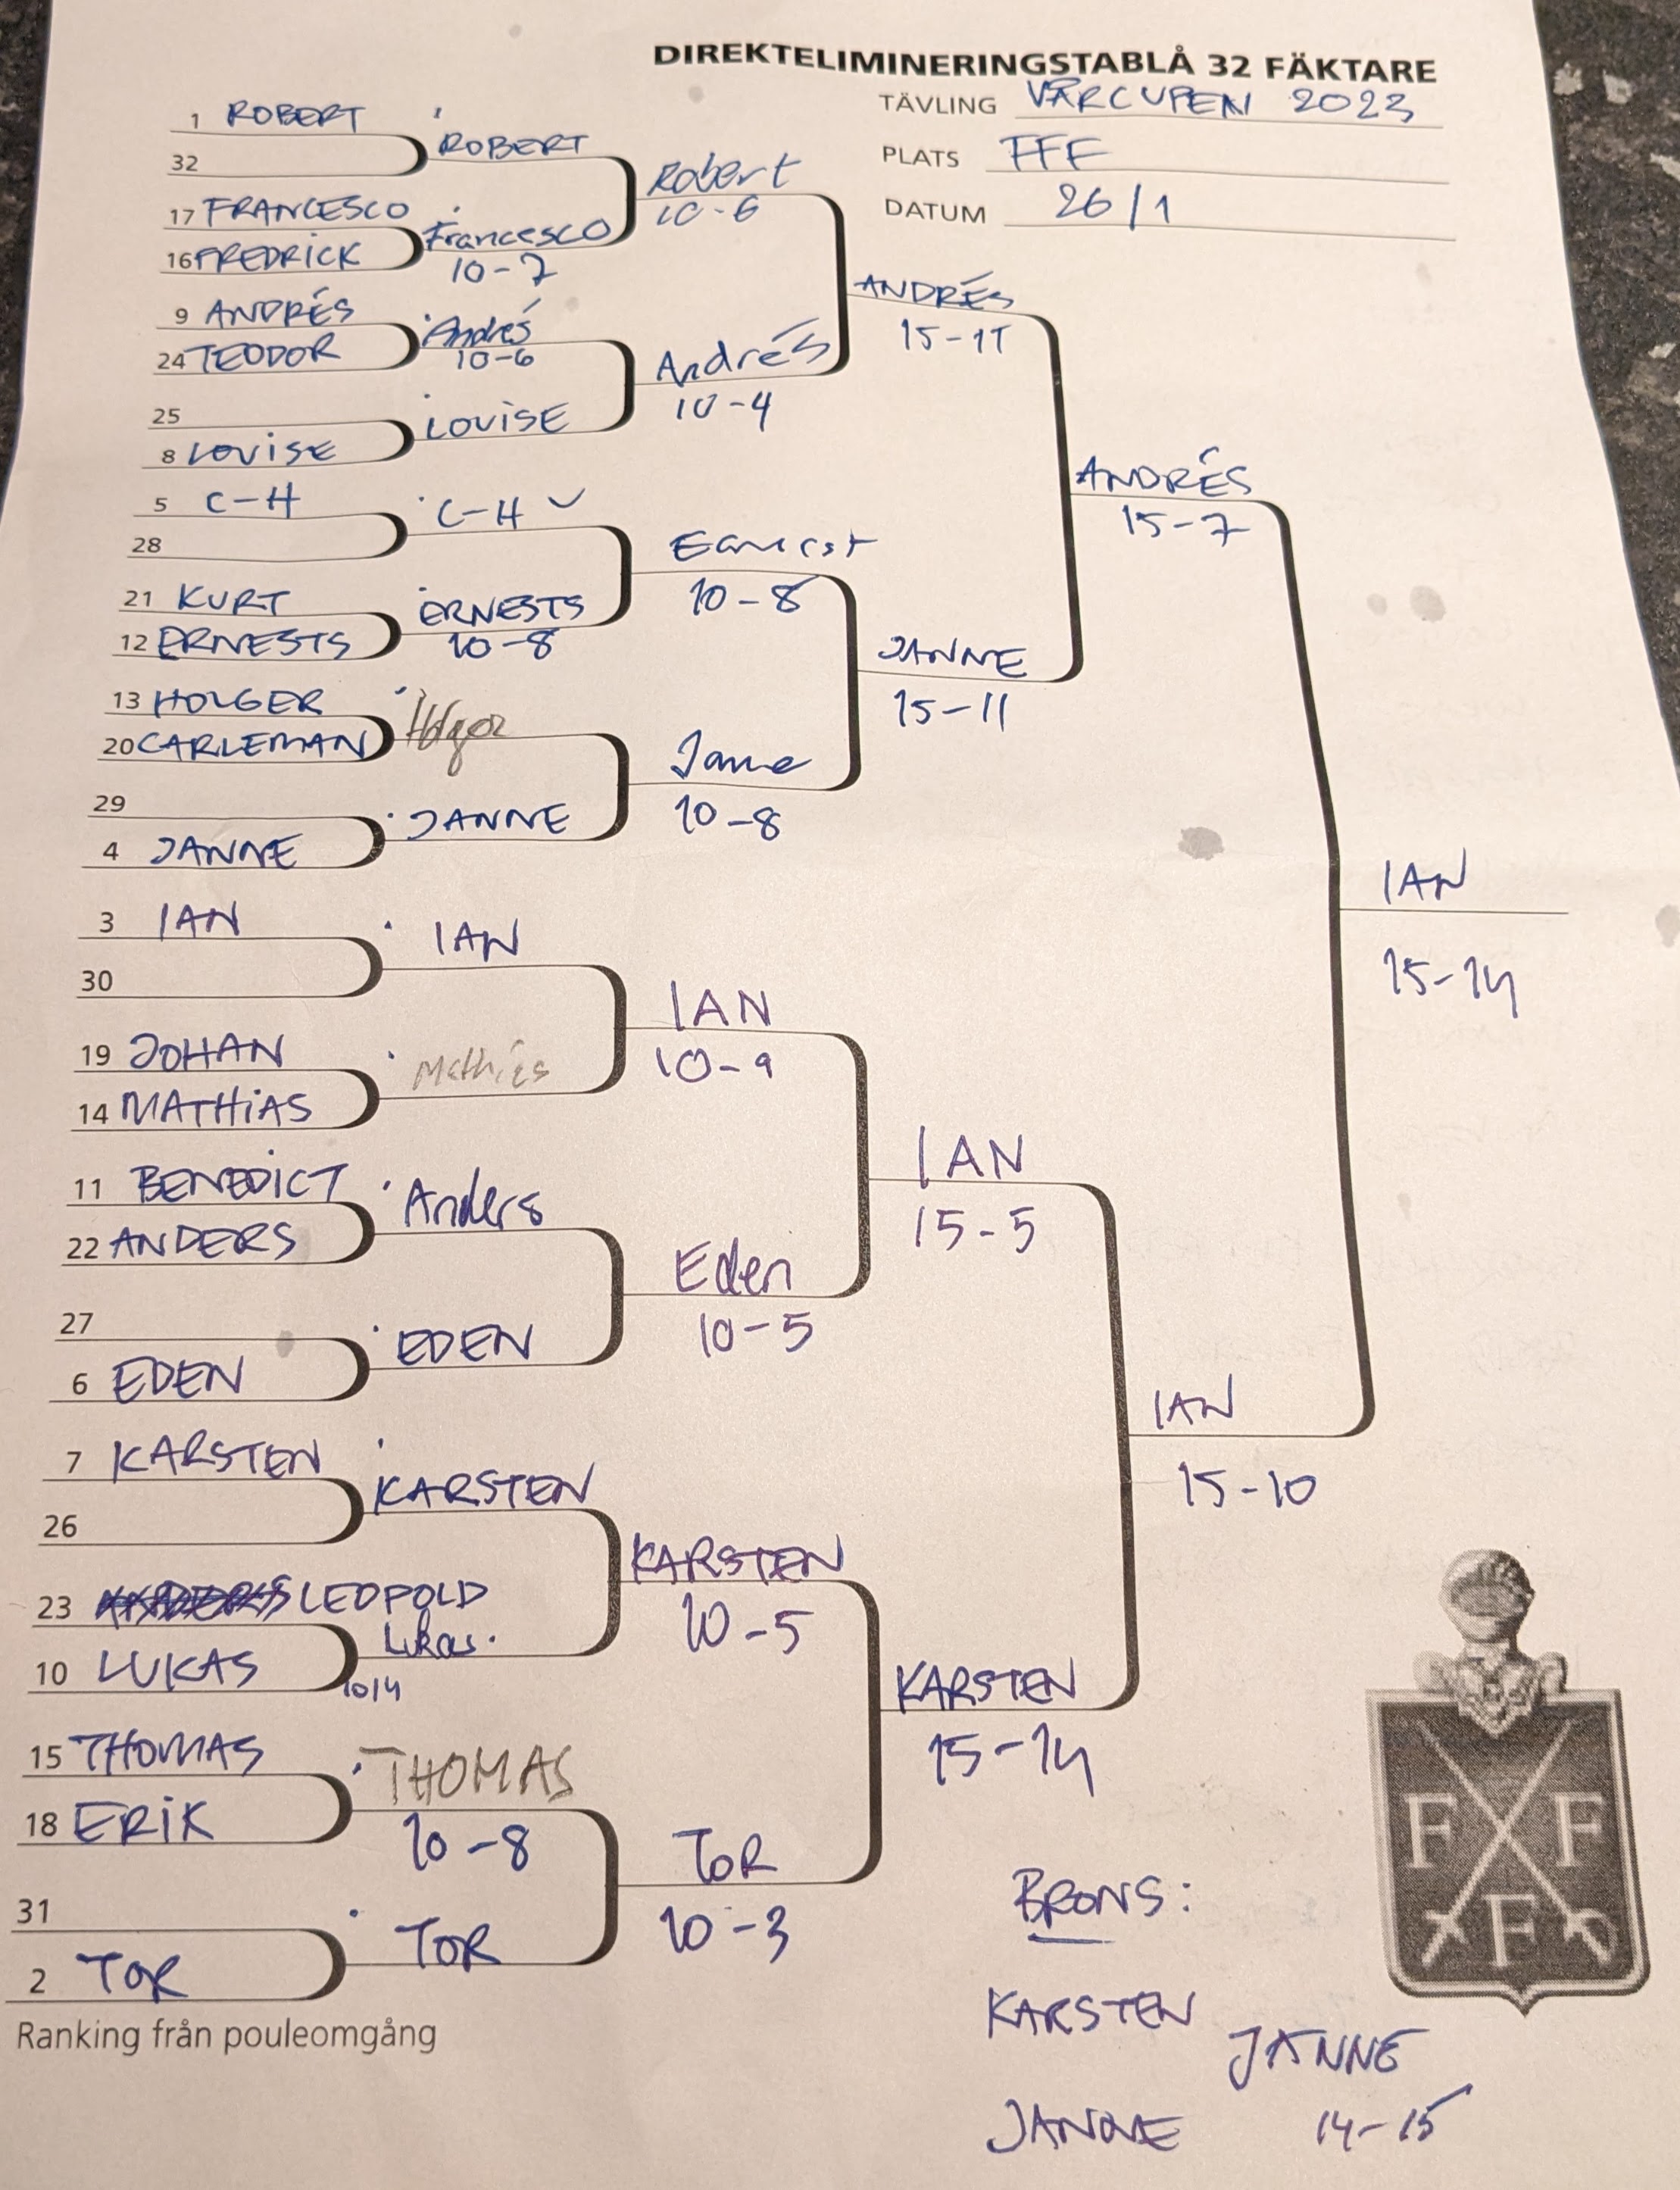 DIREKTELIMINERINGSTABLÅ 32 FÄKTARE
TÄVLING VÅRCUPEN 2023
PLATS FFF
DATUM 26/1
1 ROBERT
32
17 FRANCESCO
16 FREDRICK
9 ANDRÉS
24 TEODOR
25
8 LOUISE
5 C-H
28
21 KURT
12 ERNESTS
13 HOLGER
20 CARLEMAN
29
4 JANNE
3 IAN
30
19 JOHAN
14 MATHIAS
11 BENEDICT
22 ANDERS
27
6 EDEN
7 KARSTEN
26
23 LEOPOLD
10 LUKAS
15 THOMAS
18 ERIK
31
2 TOR
Ranking från pouleomgång
ROBERT
Francesco
10-7
Andrés
10-6
LOUISE
C-H
ERNESTS
10-8
Holger
JANNE
IAN
Mathias
Anders
EDEN
KARSTEN
Lukas
10/4
THOMAS
10-8
TOR
Robert
10-6
Andrés
10-4
10-8
Janne
10-8
IAN
10-9
Eden
10-5
KARSTEN
10-5
TOR
10-3
ANDRÉS
15-11
JANNE
15-11
IAN
15-5
KARSTEN
15-14
ANDRÉS
15-7
IAN
15-10
IAN
15-14
BRONS:
KARSTEN
JANNE
JANNE
14-15
F F
F